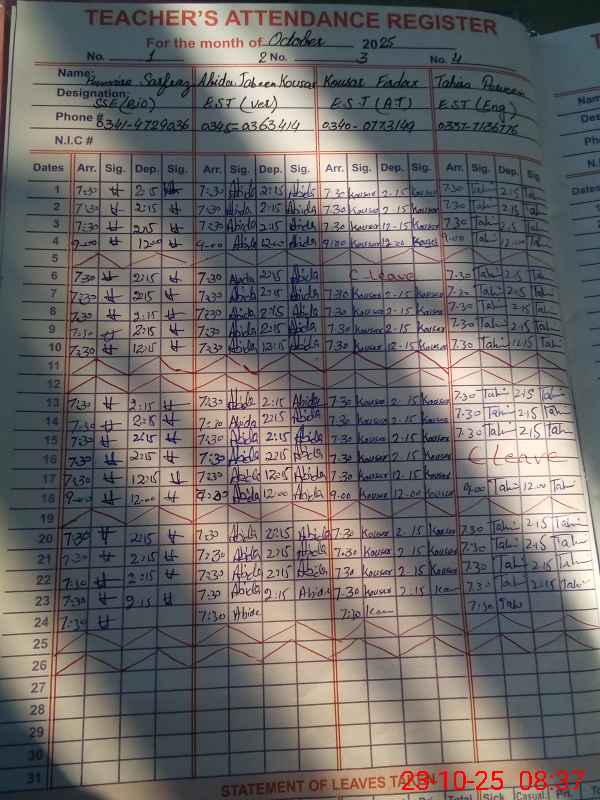 TEACHER'S ATTENDANCE REGISTER
For the month of October 2025
No. 1 2 No. 3 No. 4
Name: Sarfraz Abida Jabeen Kousar Kousar Tahira Parveen
Designation: SSE (Bio) EST (Ver) E.S.T (AT) EST (Eng)
Phone # 0341-4729036 0345-0363414 0340-0773149 0337-7136776
N.I.C #
Dates Arr. Sig. Dep. Sig. Arr. Sig. Dep. Sig. Arr. Sig. Dep. Sig. Arr. Sig. Dep. Sig.
1 7:30 2:15 7:30 Abida 2:15 Abida 7.30 Kousar 2.15 Kousar 7.30 Tah 2.15 Tah
2 7:30 2:15 7:30 Abida 2:15 Abida 7.30 Kousar 2.15 Kousar 7.30 Tah 2.15 Tah
3 7:30 2:15 7:30 Abida 2:15 Abida 7.30 Kousar 12.15 Kousar 7.30 Tah 2.15 Tah
4 9:00 12:00 9:00 Abida 12:00 Abida 9:00 Kousar 12:00 Kousar 9:00 Tah 12:00 Tah
5
6 7:30 2:15 7:30 Abida 2:15 Abida C-Leave 7.30 Tah 2.15 Tah
7 7:30 2:15 7:30 Abida 2:15 Abida 7.30 Kousar 2.15 Kousar 7.30 Tah 2.15 Tah
8 7:30 2:15 7:30 Abida 2:15 Abida 7.30 Kousar 2.15 Kousar 7.30 Tah 2.15 Tah
9 7:30 2:15 7:30 Abida 2:15 Abida 7.30 Kousar 2.15 Kousar 7.30 Tah 2.15 Tah
10 7:30 12:15 7:30 Abida 12:15 Abida 7.30 Kousar 12.15 Kousar 7.30 Tah 12.15 Tah
11
12
13 7:30 2:15 7:30 Abida 2:15 Abida 7.30 Kousar 2.15 Kousar 7.30 Tah 2.15 Tah
14 7:30 2:15 7:30 Abida 2:15 Abida 7.30 Kousar 2.15 Kousar 7.30 Tah 2.15 Tah
15 7:30 2:15 7:30 Abida 2:15 Abida 7.30 Kousar 2.15 Kousar 7.30 Tah 2.15 Tah
16 7:30 2:15 7:30 Abida 2:15 Abida 7.30 Kousar 2.15 Kousar C Leave
17 7:30 12:15 7:30 Abida 12:15 Abida 7.30 Kousar 12.15 Kousar
18 9:00 12:00 Abida 12:00 Abida 9.00 Kousar 12.00 Kousar 9.00 Tah 12.00 Tah
19
20 7:30 2:15 7:30 Abida 2:15 Abida 7.30 Kousar 2.15 Kousar 7.30 Tah 2.15 Tah
21 7:30 2:15 7:30 Abida 2:15 Abida 7.30 Kousar 2.15 Kousar 7.30 Tah 2.15 Tah
22 7:30 2:15 7:30 Abida 2:15 Abida 7.30 Kousar 2.15 Kousar 7.30 Tah 2.15 Tah
23 7:30 2:15 7:30 Abida 2:15 Abida 7.30 Kousar 2.15 7.30 Tah 2.15 Tah
24 7:30 7:30 Abida 7:30 7:30 Tah
25
26
27
28
29
30
31
STATEMENT OF LEAVES TAKEN
Total Sick Casual
23-10-25 08:37